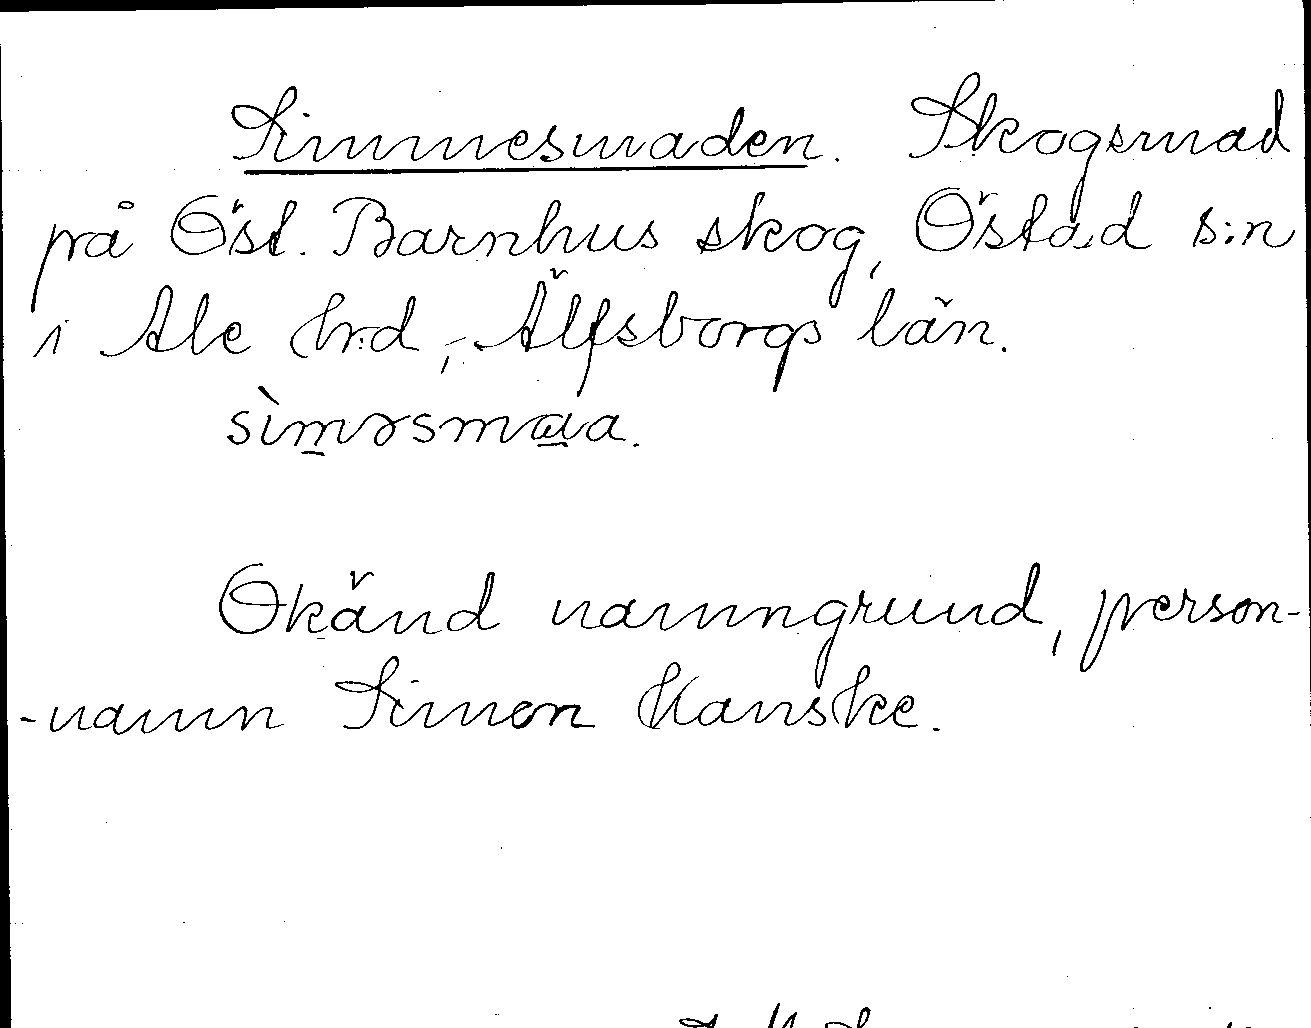 Simmesmaden. Skogsmad
på Öst. Barnhus skog, Östad s:n
i Ale hrd, Älfsborgs län.
sìmɘsmaa.
Okänd namngrund, person-
-namn Simon kanske.